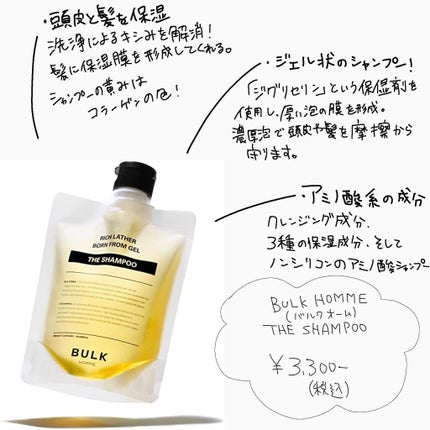 ・頭皮と髪を保湿
洗浄によるキシみを解消!
髪に保湿膜を形成してくれる。
シャンプーの黄みは
コラーゲンの色!
・ジェル状のシャンプー!
「ジグリセリン」という保湿剤を
使用し、厚い泡の膜を形成。
濃厚泡で頭皮や髪を摩擦から
守ります。
・アミノ酸系の成分
クレンジング成分、
3種の保湿成分、そして
ノンシリコンのアミノ酸シャンプー
RICH LATHER
BORN FROM GEL
THE SHAMPOO
BULK
HOMME
BULK HOMME
(バルクオーム)
THE SHAMPOO
¥3,300-
(税込)